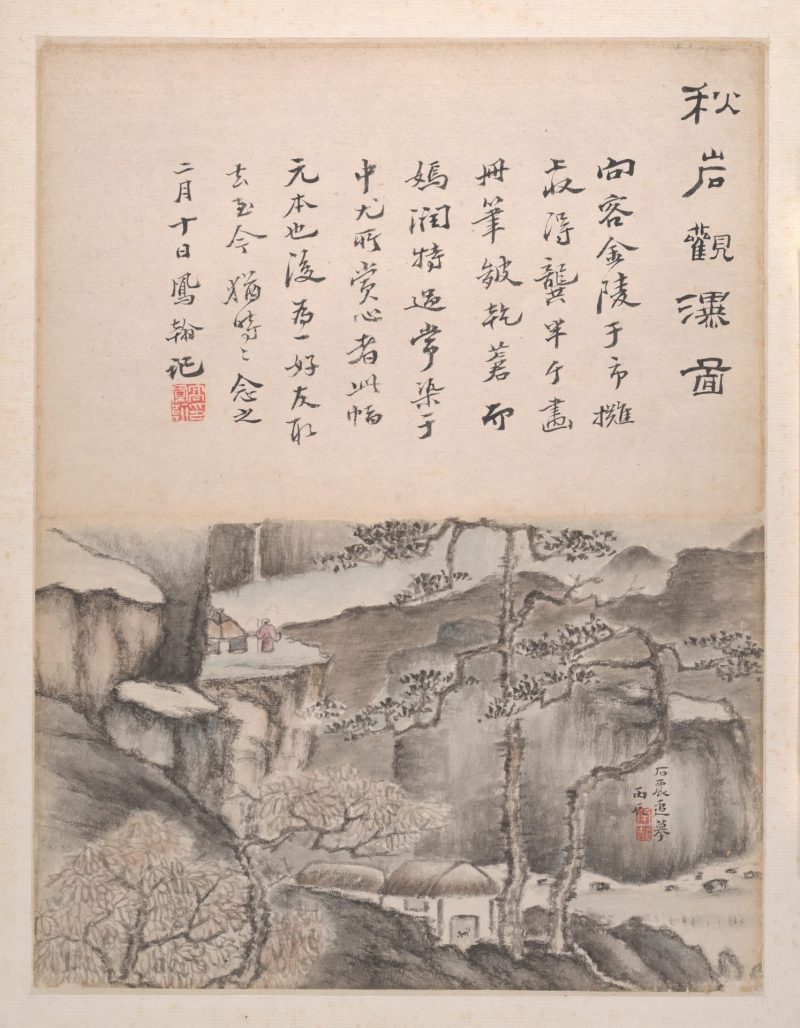 秋岩觀瀑圖
向客金陵于市攤
收得龔半千畫
冊筆皴乾蒼而
嫣潤特過常染于
中尤所賞心者此幅
元本也後為一好友取
去至今猶時〻念之
二月十日鳳翰記
石農追摹
丙辰